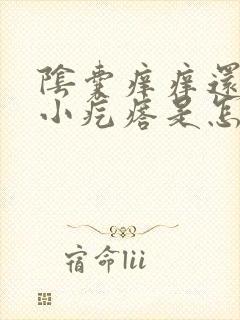 陰囊痒痒還
小疙瘩是怎
宿命lii